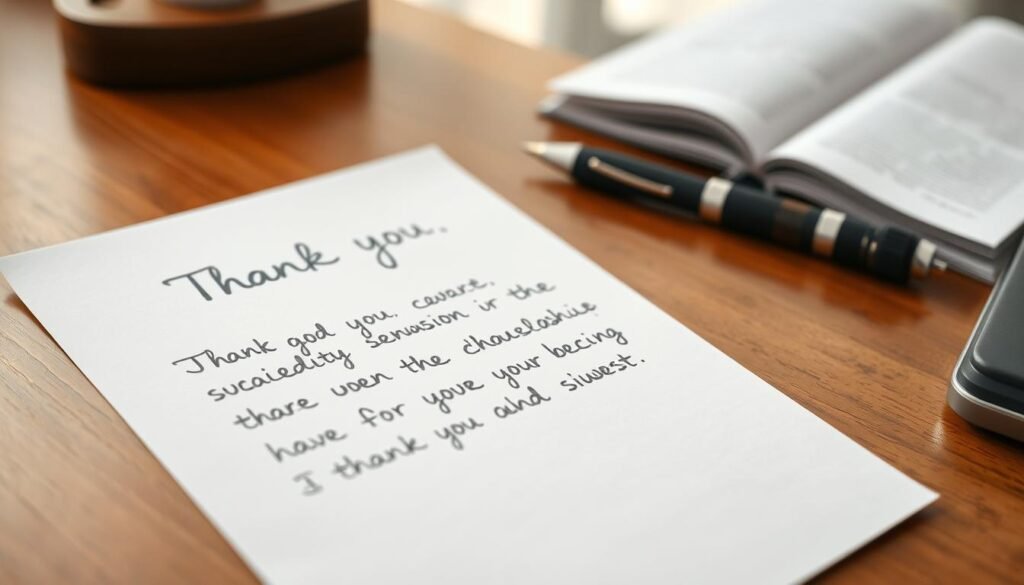 Thank you,
Thank god you, cavare,
sucaiedlity senvasion ir the
thare uven the chauelashive
have for yove your becing
I thank you auhd siwest.